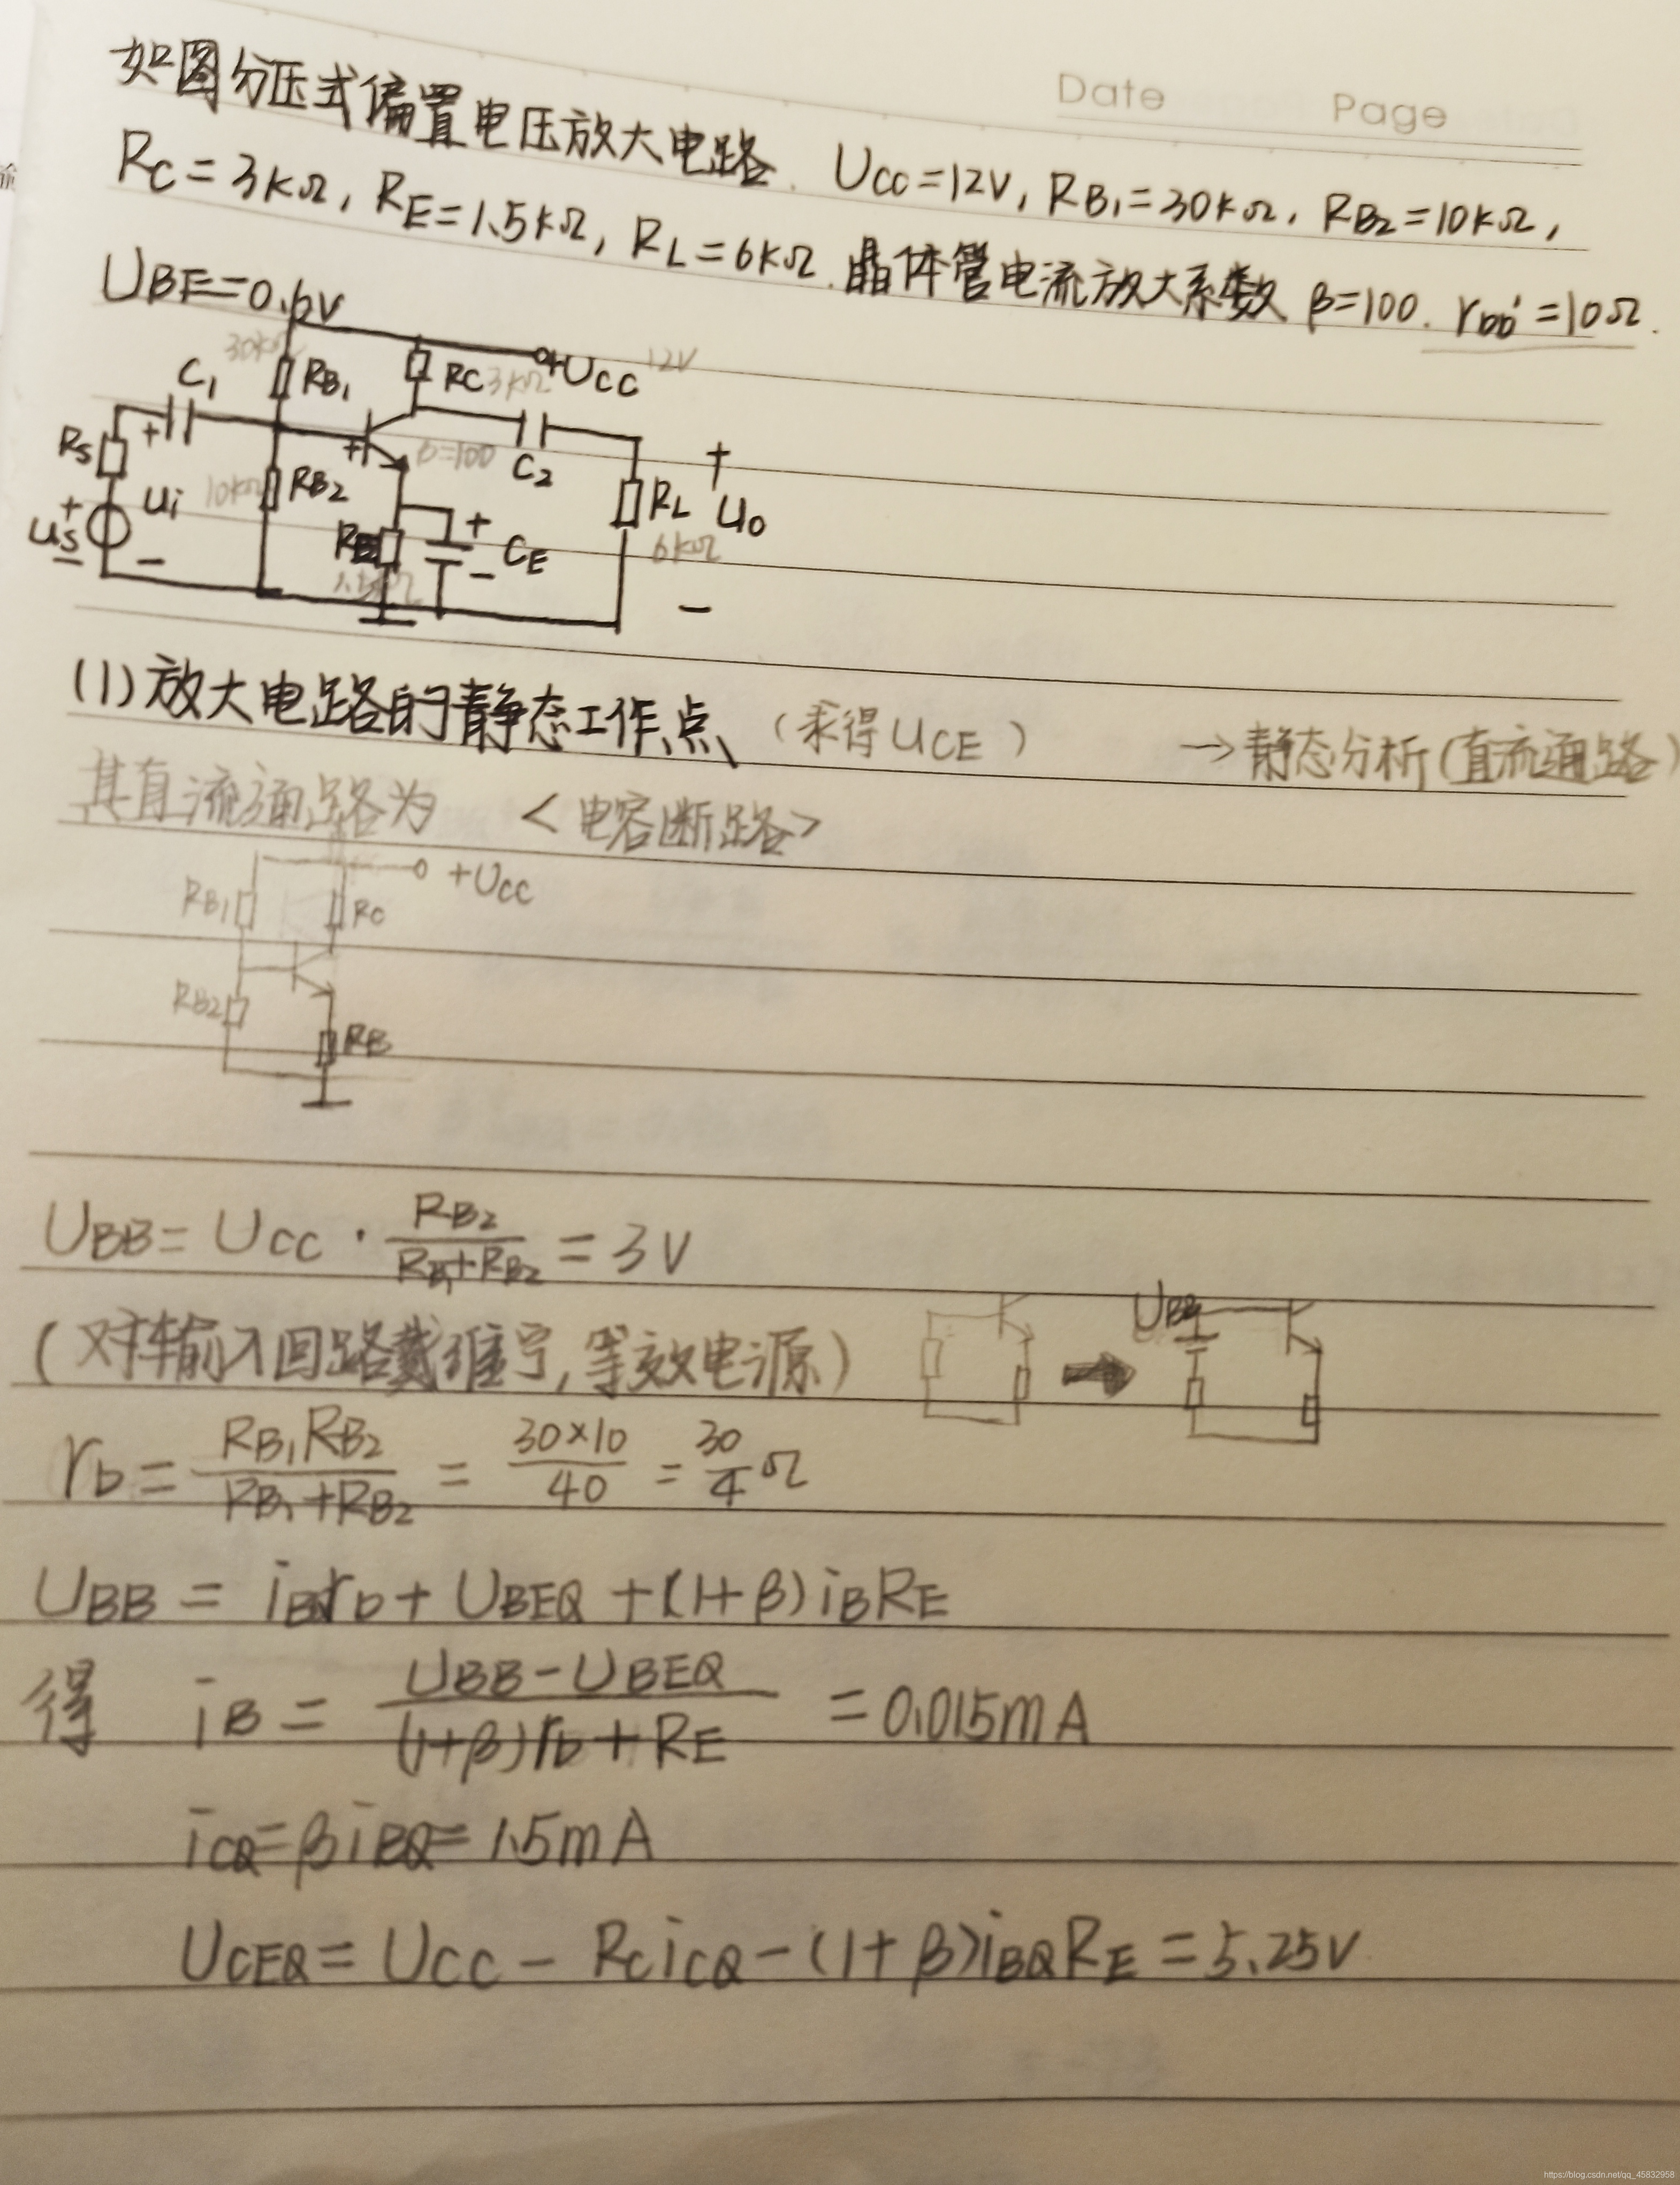 Date Page
如图分压式偏置电压放大电路. UCC=12V, RB1=30kΩ, RB2=10kΩ,
RC=3kΩ, RE=1.5kΩ, RL=6kΩ. 晶体管电流放大系数 β=100. rbb'=10Ω.
UBE=0.6V
30kΩ RB1 RC 3kΩ +UCC 12V
C1
RS + + β=100 C2 +
10kΩ RB2 RL uo
+ ui RE + CE 6kΩ
us
- - 1.5kΩ - -
(1)放大电路的静态工作点、(求得UCE) →静态分析(直流通路)
其直流通路为 <电容断路>
+UCC
RB1 RC
RB2
RE
UBB=UCC·RB2/(RB1+RB2)=3V
(对输入回路戴维宁,等效电源) UBB
rb=RB1RB2/(RB1+RB2)=30×10/40=30/4Ω
UBB=iBrb+UBEQ+(1+β)iBRE
得 iB=(UBB-UBEQ)/((1+β)rb+RE)=0.015mA
iCQ=βiBQ=1.5mA
UCEQ=UCC-RCiCQ-(1+β)iBQRE=5.25V
https://blog.csdn.net/qq_45832958